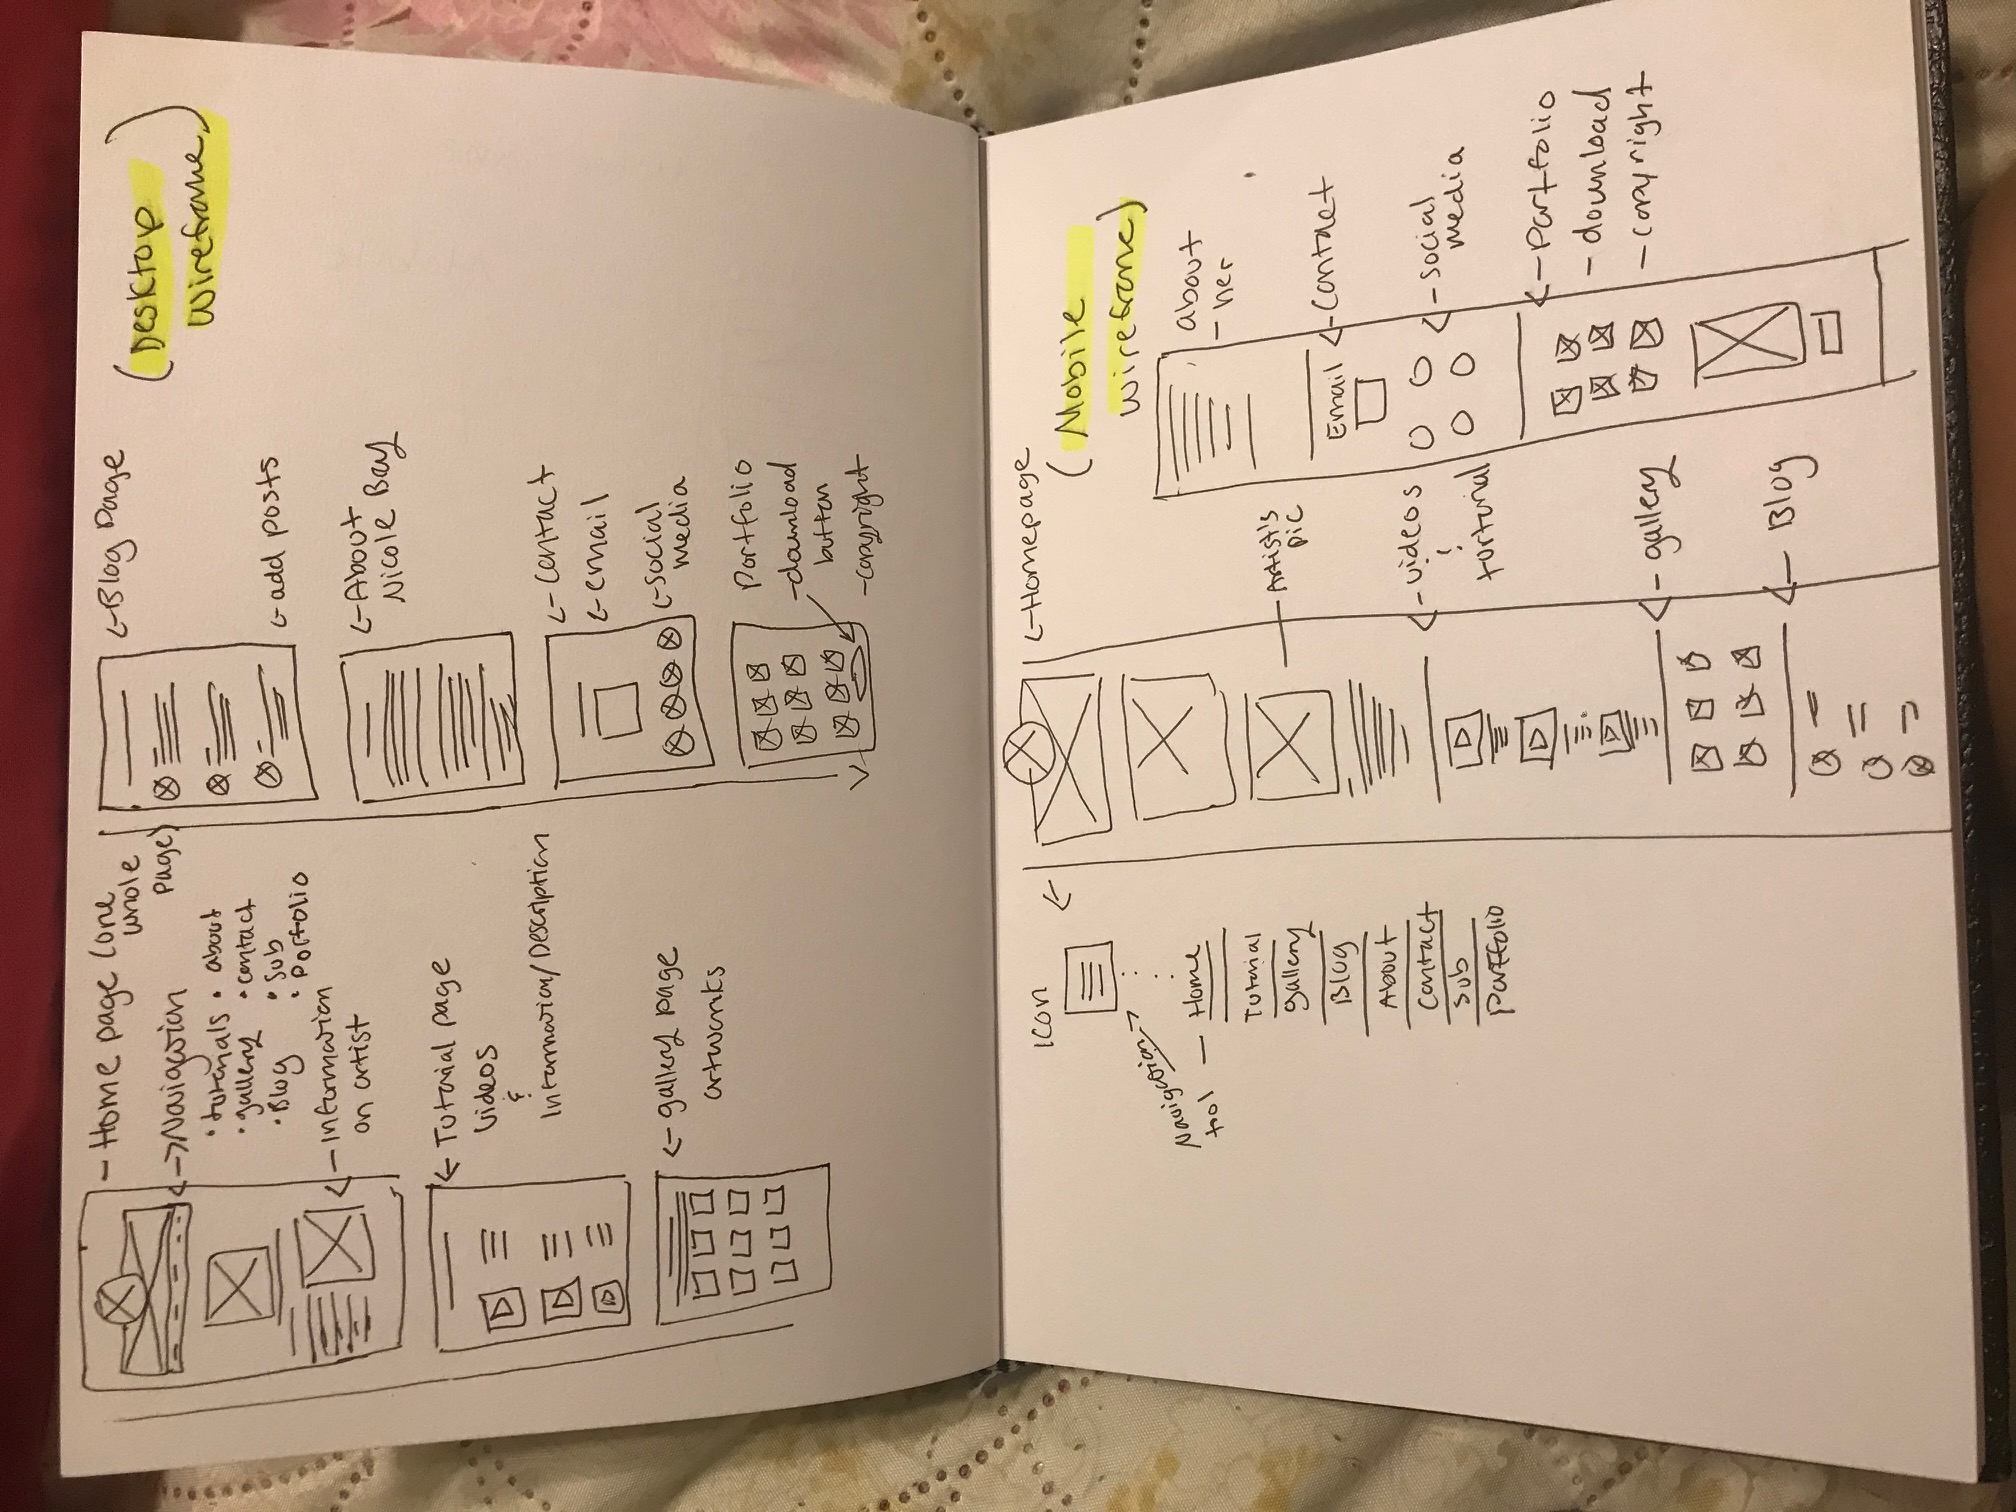 - Home page (one
whole
page)
-> Navigation
• tutorials • about
• gallery • contact
• Blog • Sub
• Portfolio
<- Information
on artist
<- Tutorial page
videos
&
Information/Description
<- gallery page
artworks
<- Blog page
<- add posts
<- About
Nicole Bay
<- contact
<- email
<- social
media
Portfolio
- download
button
- copyright
(Desktop
wireframe)
Icon
Navigation
tool
Home
Tutorial
gallery
Blog
About
Contact
Sub
Portfolio
<- Homepage
Artist's
pic
<- videos
&
tortorial
<- gallery
<- Blog
(Mobile
wireframe)
about
- her
Email <- contact
<- social
media
<- Portfolio
- download
- copyright